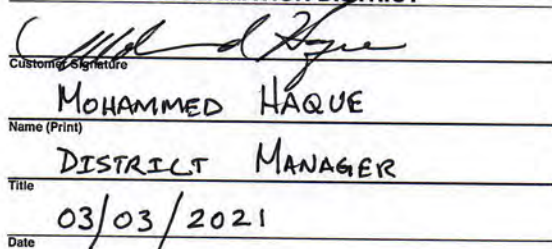 Customer Signature
MOHAMMED HAQUE
Name (Print)
DISTRICT MANAGER
Title
03/03/2021
Date